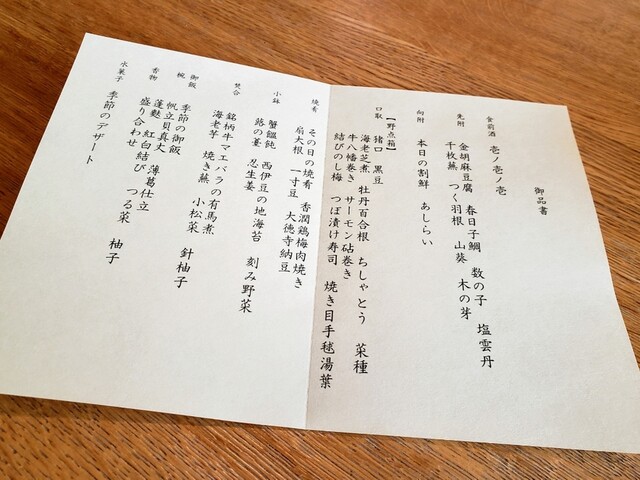 御品書
食前酒 壱ノ壱ノ壱
先附 金胡麻豆腐 春日子鯛 数の子 塩雲丹
千枚蕪 つく羽根 山葵 木の芽
向附 本日の割鮮 あしらい
【野点箱】
口取 猪口 黒豆
海老芝煮 牡丹百合根 ちしゃとう 菜種
牛八幡巻き サーモン砧巻き
結びのし梅 つぼ漬け寿司 焼き目手毬湯葉
焼肴 その日の焼肴 香潤鶏梅肉焼き
扇大根 一寸豆 大徳寺納豆
小鉢 蟹饂飩 西伊豆の地海苔 刻み野菜
蕗の薹 忍生姜
焚合 銘柄牛マエバラの有馬煮
海老芋 焼き蕪 小松菜 針柚子
御飯 季節の御飯
椀 帆立貝真丈 薄葛仕立
蓬麩 紅白結び つる菜 柚子
香物 盛り合わせ
水菓子 季節のデザート